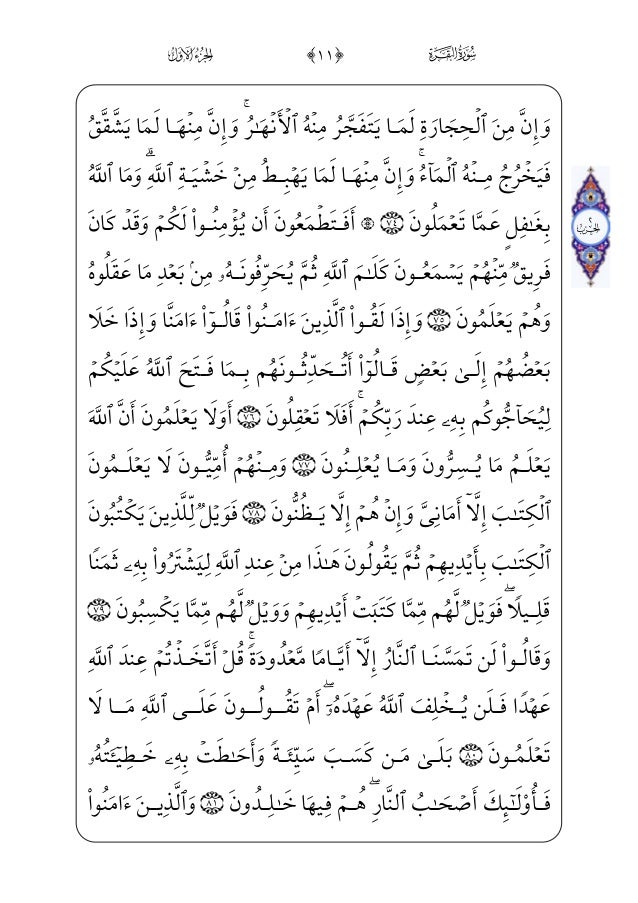 سُورَةُ البَقَرَةِ ﴿١١﴾ الجُزءُ الأوّلُ
وَإِنَّ مِنَ ٱلۡحِجَارَةِ لَمَا يَتَفَجَّرُ مِنۡهُ ٱلۡأَنۡهَٰرُۚ وَإِنَّ مِنۡهَا لَمَا يَشَّقَّقُ
فَيَخۡرُجُ مِنۡهُ ٱلۡمَآءُۚ وَإِنَّ مِنۡهَا لَمَا يَهۡبِطُ مِنۡ خَشۡيَةِ ٱللَّهِۗ وَمَا ٱللَّهُ
بِغَٰفِلٍ عَمَّا تَعۡمَلُونَ ٧٤ ۞ أَفَتَطۡمَعُونَ أَن يُؤۡمِنُواْ لَكُمۡ وَقَدۡ كَانَ
الحزب ٢
فَرِيقٞ مِّنۡهُمۡ يَسۡمَعُونَ كَلَٰمَ ٱللَّهِ ثُمَّ يُحَرِّفُونَهُۥ مِنۢ بَعۡدِ مَا عَقَلُوهُ
وَهُمۡ يَعۡلَمُونَ ٧٥ وَإِذَا لَقُواْ ٱلَّذِينَ ءَامَنُواْ قَالُوٓاْ ءَامَنَّا وَإِذَا خَلَا
بَعۡضُهُمۡ إِلَىٰ بَعۡضٖ قَالُوٓاْ أَتُحَدِّثُونَهُم بِمَا فَتَحَ ٱللَّهُ عَلَيۡكُمۡ
لِيُحَآجُّوكُم بِهِۦ عِندَ رَبِّكُمۡۚ أَفَلَا تَعۡقِلُونَ ٧٦ أَوَلَا يَعۡلَمُونَ أَنَّ ٱللَّهَ
يَعۡلَمُ مَا يُسِرُّونَ وَمَا يُعۡلِنُونَ ٧٧ وَمِنۡهُمۡ أُمِّيُّونَ لَا يَعۡلَمُونَ
ٱلۡكِتَٰبَ إِلَّآ أَمَانِيَّ وَإِنۡ هُمۡ إِلَّا يَظُنُّونَ ٧٨ فَوَيۡلٞ لِّلَّذِينَ يَكۡتُبُونَ
ٱلۡكِتَٰبَ بِأَيۡدِيهِمۡ ثُمَّ يَقُولُونَ هَٰذَا مِنۡ عِندِ ٱللَّهِ لِيَشۡتَرُواْ بِهِۦ ثَمَنٗا
قَلِيلٗاۖ فَوَيۡلٞ لَّهُم مِّمَّا كَتَبَتۡ أَيۡدِيهِمۡ وَوَيۡلٞ لَّهُم مِّمَّا يَكۡسِبُونَ ٧٩
وَقَالُواْ لَن تَمَسَّنَا ٱلنَّارُ إِلَّآ أَيَّامٗا مَّعۡدُودَةٗۚ قُلۡ أَتَّخَذۡتُمۡ عِندَ ٱللَّهِ
عَهۡدٗا فَلَن يُخۡلِفَ ٱللَّهُ عَهۡدَهُۥٓۖ أَمۡ تَقُولُونَ عَلَى ٱللَّهِ مَا لَا
تَعۡلَمُونَ ٨٠ بَلَىٰ مَن كَسَبَ سَيِّئَةٗ وَأَحَٰطَتۡ بِهِۦ خَطِيٓـَٔتُهُۥ
فَأُوْلَٰٓئِكَ أَصۡحَٰبُ ٱلنَّارِۖ هُمۡ فِيهَا خَٰلِدُونَ ٨١ وَٱلَّذِينَ ءَامَنُواْ